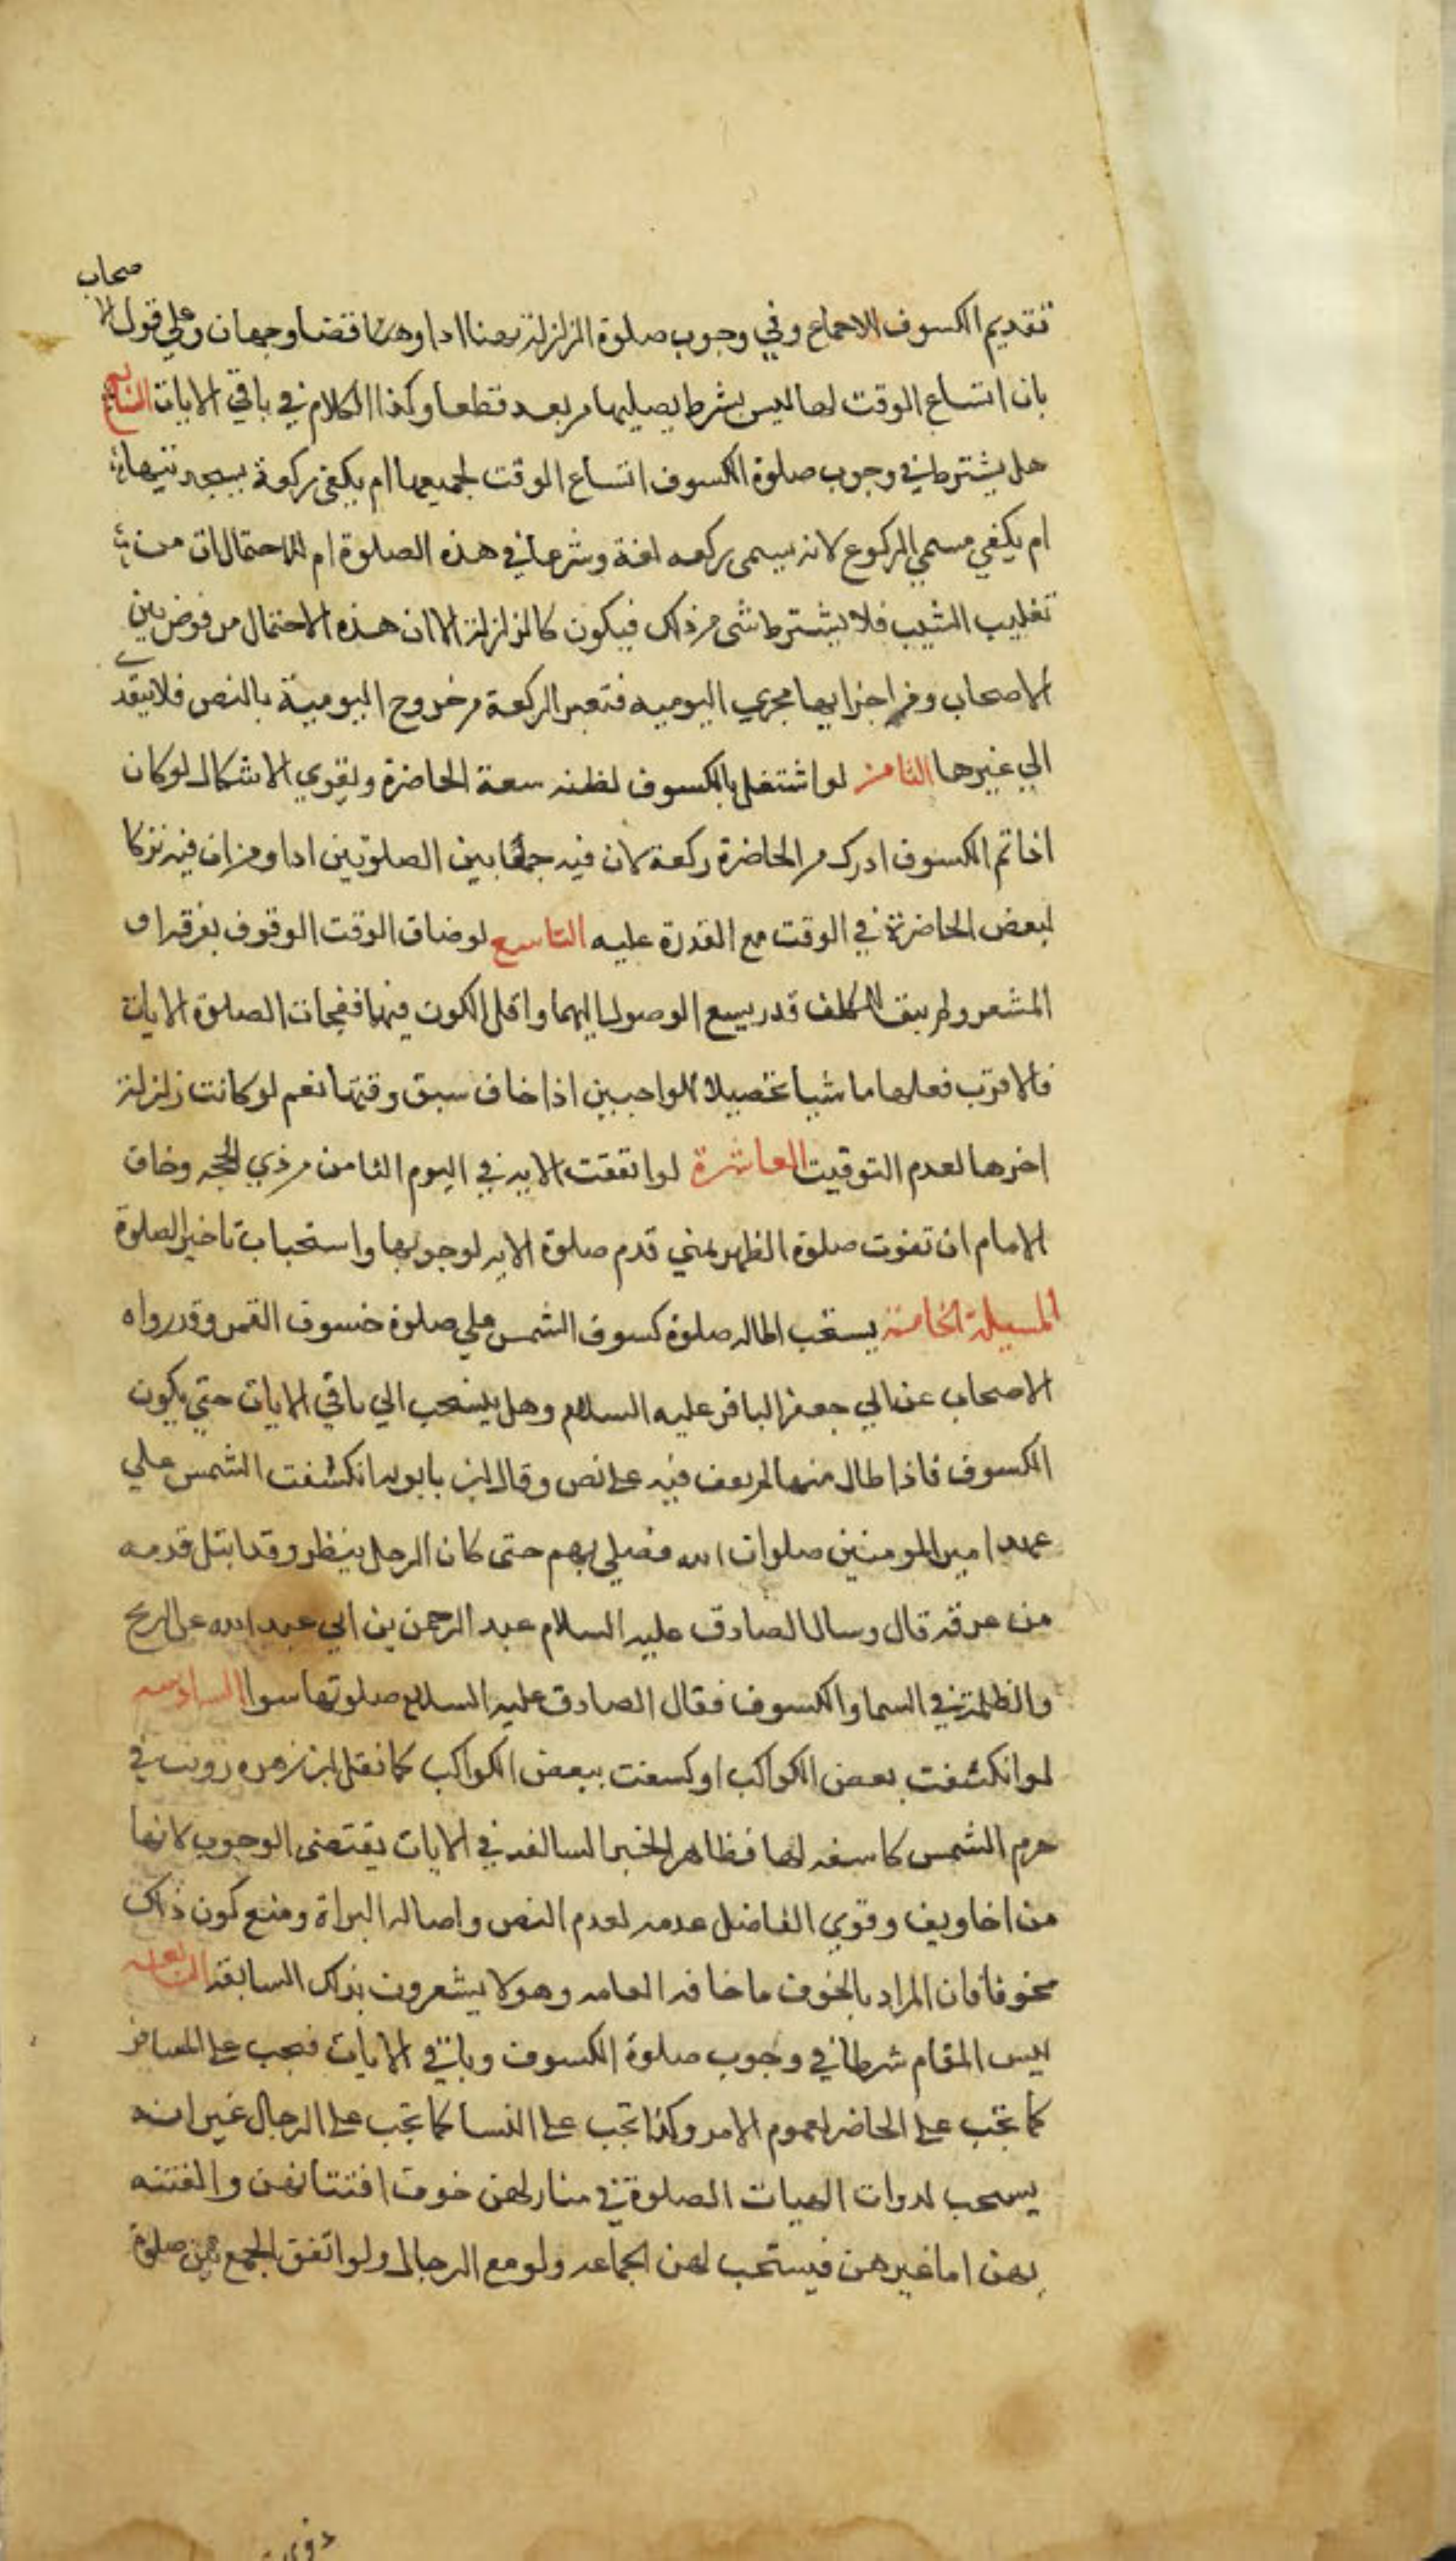 تقديم الكسوف للاجماع وفي وجوب صلوة الزلزلة هنا ادا وهنا قضا وجهان وعلي قول الاصحاب
بان اتساع الوقت لها ليس بشرط يصليها من بعد قطعا وكذا الكلام في باقي الايات السابع
هل يشترط في وجوب صلوة الكسوف اتساع الوقت لجميعها ام يكفي ركعة بسجدتيها
ام يكفي مسمي الركوع لانه يسمى ركعه لغة وشرعا في هذه الصلوة ام للاحتمالات من
تغليب السبب فلا يشترط شي من ذلك فيكون كالزلزلة الا ان هذه الاحتمال مرفوض بين
الاصحاب ومن اجرايها مجري اليوميه فتعبر الركعة من خروج اليومية بالنص فلا يتعدي
الي غيرها الثامن لو اشتغل بالكسوف لظنه سعة الحاضرة ويقوي الاشكال لو كان
اذا تم الكسوف ادرك من الحاضرة ركعة لان فيه جمعا بين الصلوتين ادا ومن ان فيه تركا
لبعض الحاضرة في الوقت مع القدرة عليه التاسع لو ضاق الوقت الوقوف بعرفة او
المشعر وطريق المكلف قدر يسع الوصول اليهما واقل الكون فيها ففجات الصلوة الايات
فالاقرب فعلها ماشيا تحصيلا للواجبين اذا خاف سبق وقتها نعم لو كانت زلزلة
اخرها لعدم التوقيت العاشرة لو اتفقت الايه في اليوم الثامن من ذي الحجه وخاف
الامام ان تفوت صلوة الظهر بمني قدم صلوة الايه لوجوبها واستحباب تاخير الصلوة
المسيلة الخامسة يستحب اطاله صلوة كسوف الشمس علي صلوة خسوف القمر وقد رواه
الاصحاب عن ابي جعفر الباقر عليه السلام وهل ينسحب الي باقي الايات حتي يكون
الكسوف فاذا طال منها لم نقف فيه على نص وقال ابن بابويه انكشفت الشمس علي
عهد امير المومنين صلوات الله فصلي بهم حتى كان الرجل ينظر وقد ابتل قدمه
من عرقه قال وسال الصادق عليه السلام عبد الرحمن بن ابي عبد الله عن الريح
والظلمة في السما والكسوف فقال الصادق عليه السلام صلوتها سوا السادسه
لو انكشفت بعض الكواكب او كسفت ببعض الكواكب كما نقل ان زهره رويت في
جرم الشمس كاسفه لها فظاهر الخبر السالفه في الايات يقتضي الوجوب لانها
من اخاويف وقوي الفاضل عدمه لعدم النص واصاله البراة ومنع كون ذلك
مخوفا فان المراد بالخوف ما خافه العامه وهو لا يشعرون بذلك السابقه السابعه
ليس المقام شرطا في وجوب صلوة الكسوف وباقي الايات فيجب على المسافر
كما تجب على الحاضر لعموم الامر وكذا تجب على النسا كما تجب على الرجال غير انه
يسحب لدوات الهيات الصلوة في منازلهن خوف افتتانهن والفتنه
بهن اما غيرهن فيستحب لهن الجماعه ولو مع الرجال ولو اتفق الجمع بهن صلوة